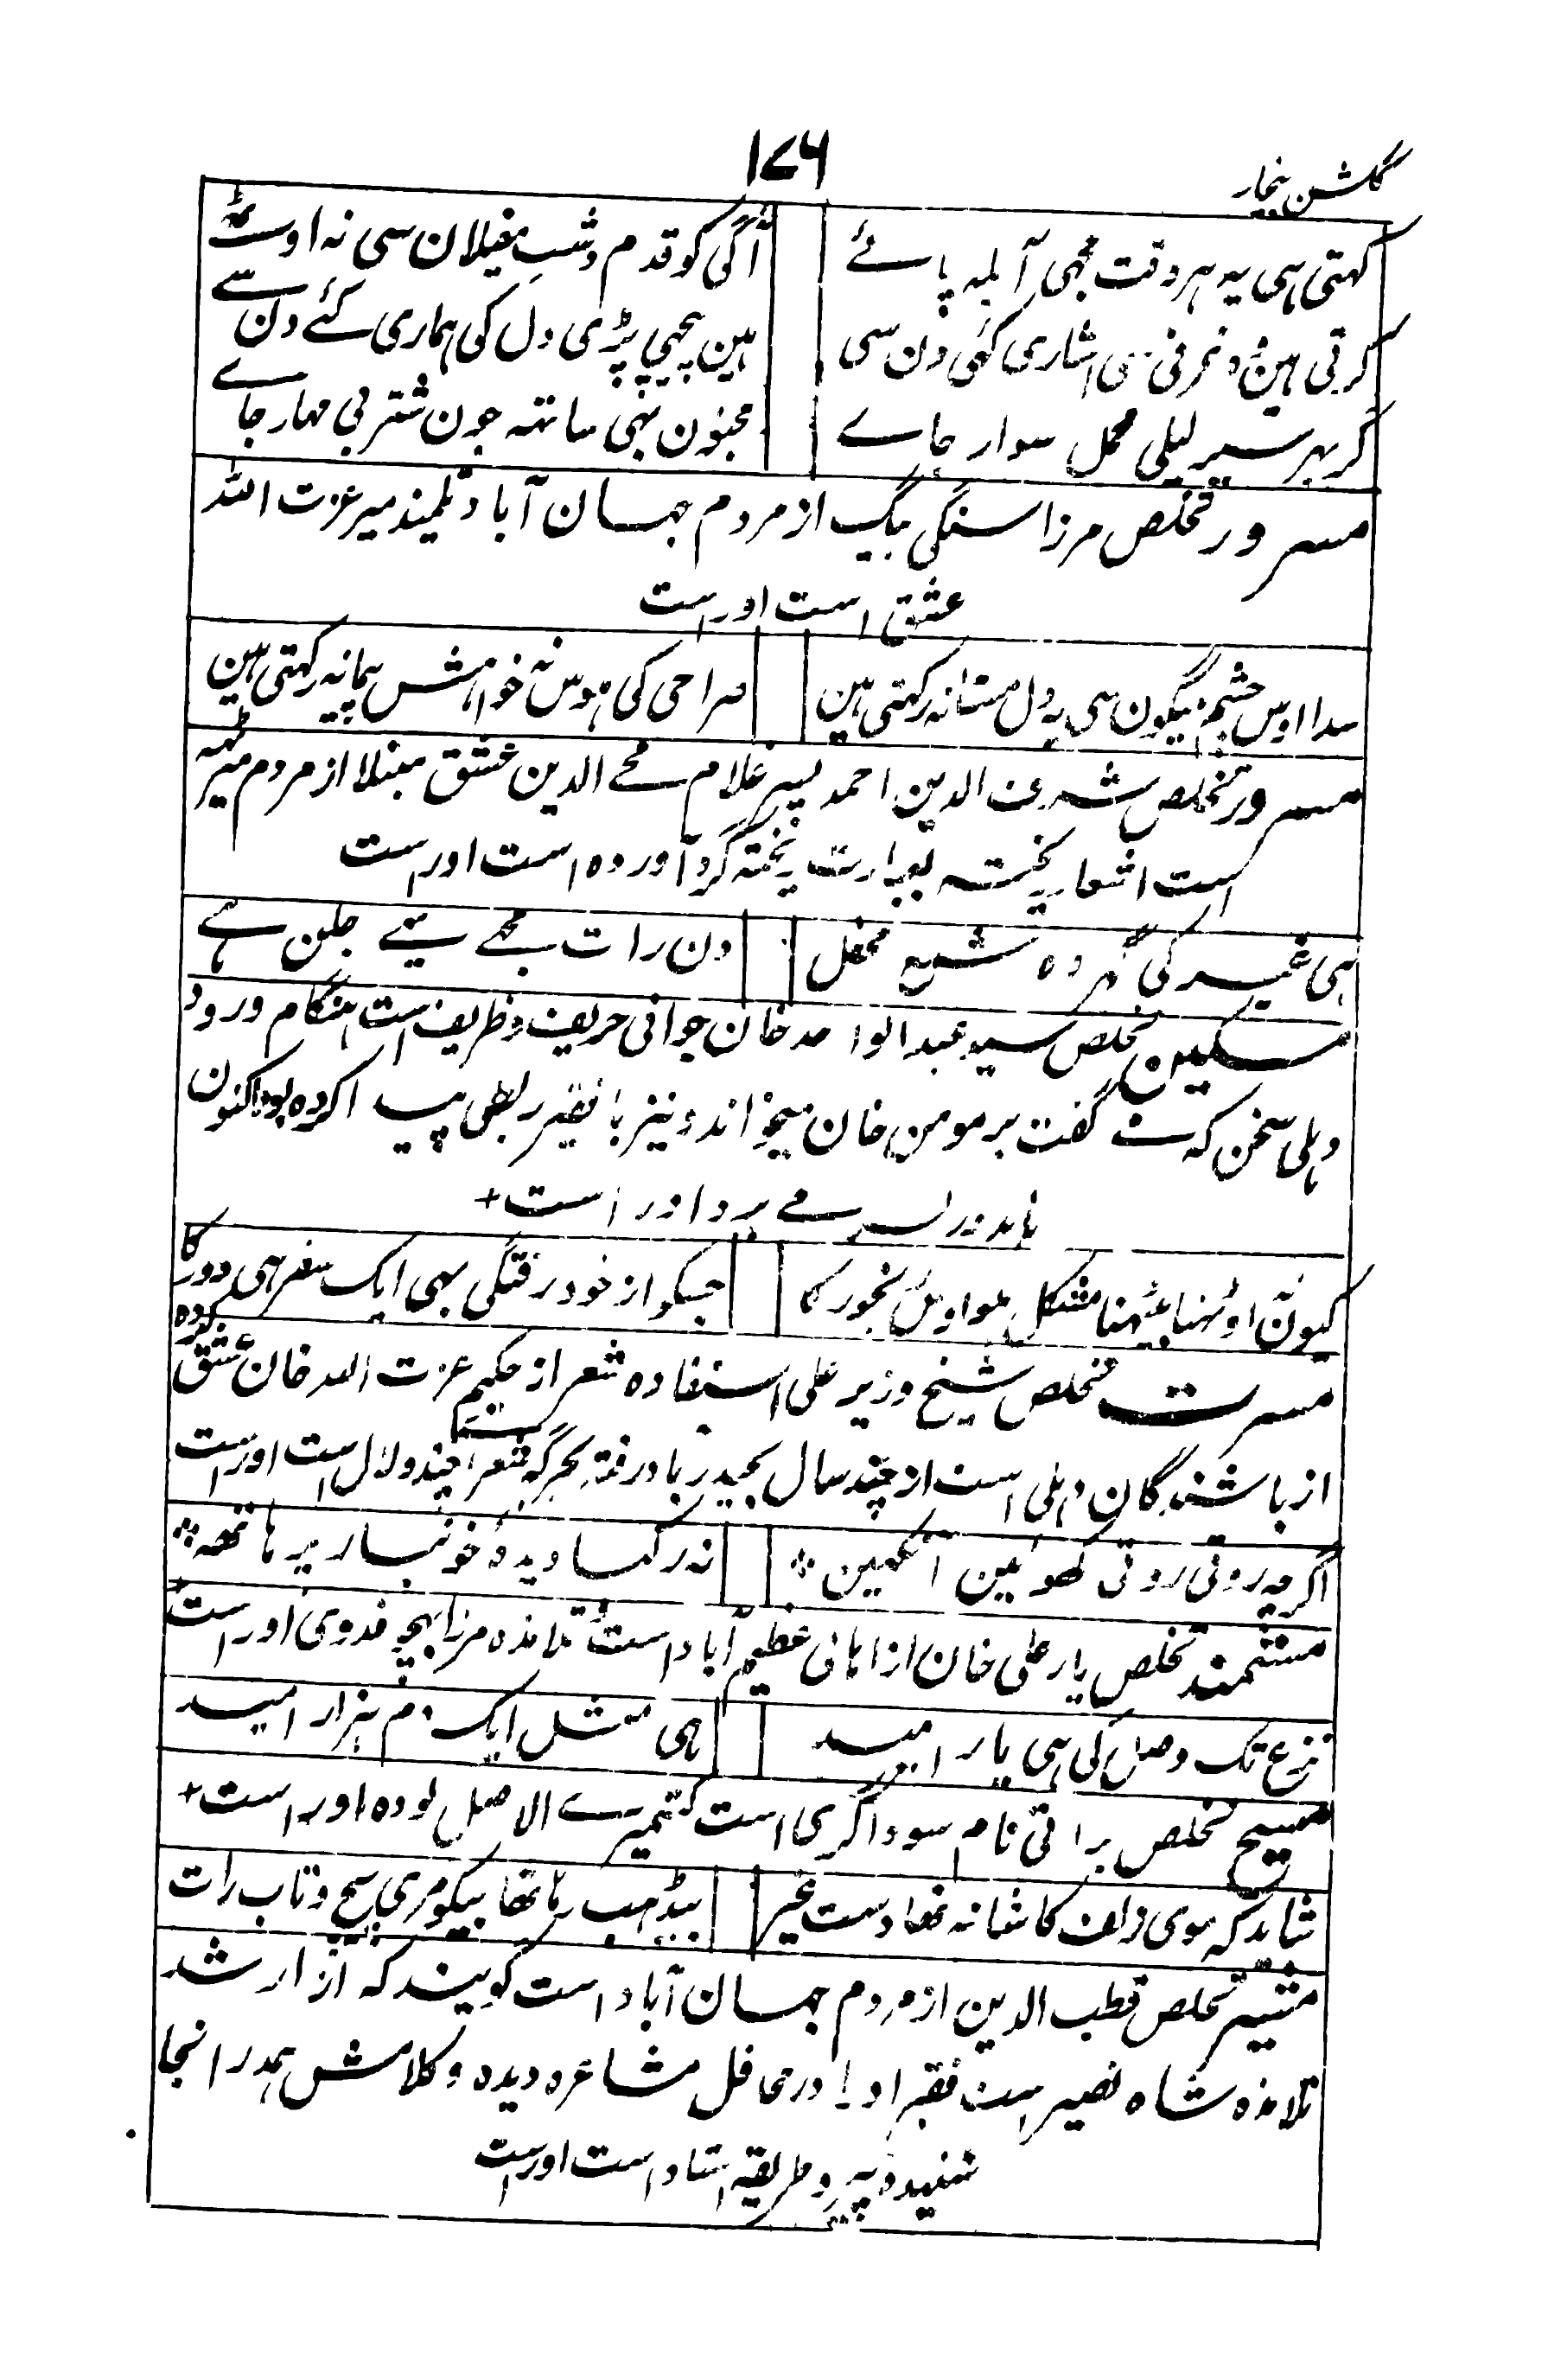 ۱۷۶
گلشن بیخار
کہتی ہی یہ ہر وقت مجہی آبلہ پائے
آگی کو قدم دشتِ مغیلان سی نہ اوٹھے
کرتی ہین وہ غرفی سی اشاری کئی دن سی
ہین پیچھی پڑی دل کی ہماری کئے دن سے
گر بہر سیر لیلی محمل سوار جاے
مجنون بہی ساتہہ جون شتر بی مہار جاے
مسرور تخلص مرزا سنگی بیگ از مردم جہان آباد تلمیذ میر عزت اللہ
عشق است اوراست
سدا اوس چشم میگون سی یہ دل مستانہ رکہتی ہین
صراحی کی ہوس نہ خواہش پیمانہ رکہتی ہین
مسرور تخلص شرف الدین احمد پسر غلام محے الدین عشق مبتلا از مردم میرٹہہ
است اشعار ریختہ بعبارت پختہ گرد آوردہ است اوراست
ہی غیر کی گہر وہ شمع محفل
دن رات مجھے یہی جلن ہے
مسکین تخلص سید عبد الواحد خان جوانی حریف و ظریف است ہنگام ورود
دہلی سخن کہ گفت بر مومن خان میخواند و نیز با فقیر ربطی پیدا کردہ بود اکنون
باندور بسر می برد اوراست +
کیون نہ اوٹہنا بیٹہنا مشکل ہو اوس رنجور کا
جسکو از خود رفتگی بہی ایک سفر ہی دور کا
مسرت تخلص شیخ وزیر علی استفادہ شعر از حکیم عزت اللہ خان عشق کردہ
از باشندگان دہلی است از چند سال بحیدرآباد رفتہ بجرگہ شعراے چندولال است اوراست
اگرچہ روتی روتی کہوئین آنکہین
نہ رکہا دیدۂ خونبار پر ہاتھہ
مستمند تخلص یار علی خان از اہالی عظیم آباد است تلامذہ مرزا بہچو فدوی اوراست
نزع تک وصل کی ہی یار امید
ہی مثل ایک دم ہزار امید
مسیح تخلص براتی نام سوداگری است کشمیرے الاصل بودہ اوراست +
شاید کہ موی زلف کا شانہ تھا دست غیر
بیڈہب رہا تھا پیکو مری پیچ و تاب رات
مشیر تخلص قطب الدین از مردم جہان آباد است گویند کہ از ارشد
تلامذہ شاہ نصیر است فقیر او را در محافل مشاعرہ دیدہ و کلامش ہمدرانجا
شنیدہ پیرو طریقہ استاد است اوراست